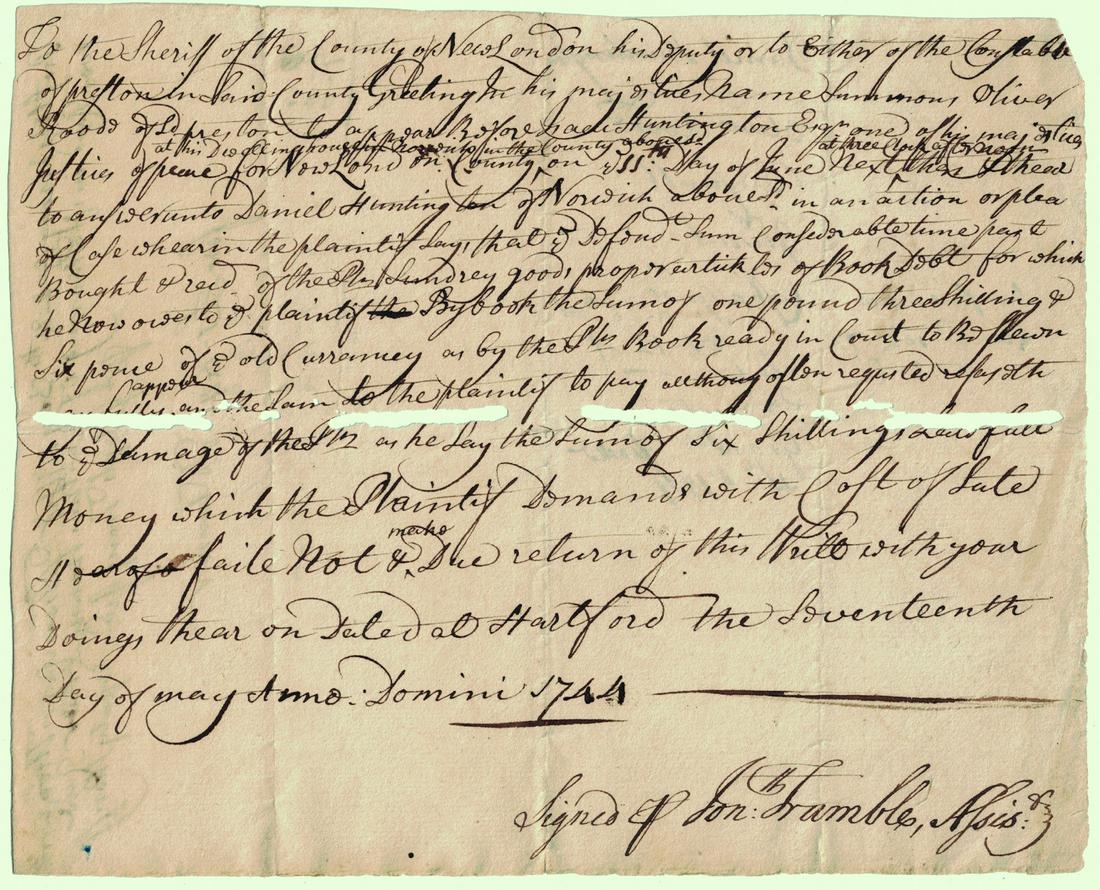 To the Sheriff of the County of New London his Deputy or to Either of the Constable
of preston in Said County Greeting In his majesties Name Summons Oliver
Roode of sd preston to appear Before Isaac Huntington Esqr one of his majesties
at his Dwelling house in Norwich in the County abovesd at three Clock afternoon
Justices of peace for New London County on ye 11th Day of June Next then & thear
to answer unto Daniel Huntington of Norwich abovesd in an action or plea
of Case whearin the plaintif Says that ye Defendt Sum Considerable time past
Bought & recd of the Pltf Sundrey goods proper articktles of Book Debt for which
he Now owes to ye plaintif the By book the Sum of one pound three Shilling &
Six pence of ye old Currancy as by the Pltfs Book ready in Court to Be Shewn
appear
fully and the Sam to the plaintif to pay although often requsted
to ye Damage of the Pltf as he Say the Sum of Six Shillings Lawfull
Money which the Plaintif Demands with Cost of Sute
make
Hearof faile Not & Due return of this Writt with your
Doings thear on Dated at Hartford the Seventeenth
Day of may Anno: Domini 1744
Signed P Jonth: Trumble, Assist: